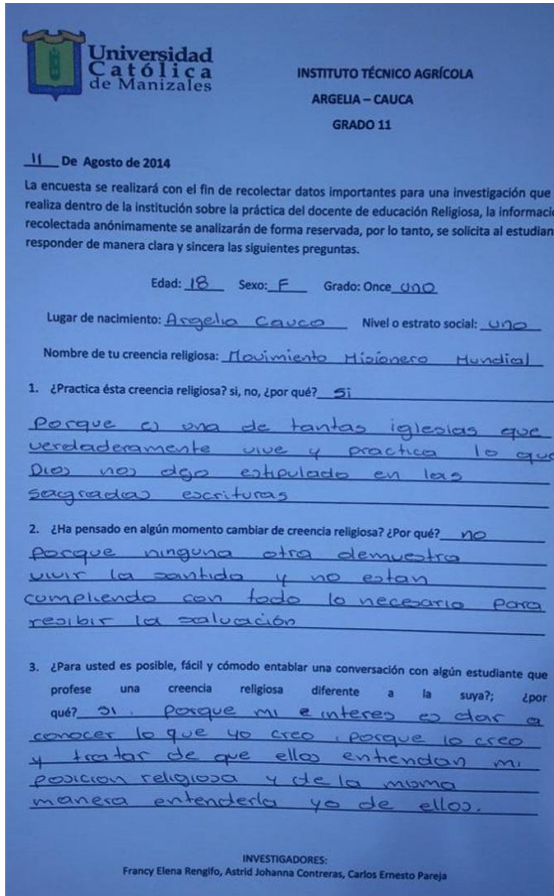 Universidad
Católica
de Manizales
INSTITUTO TÉCNICO AGRÍCOLA
ARGELIA – CAUCA
GRADO 11
11 De Agosto de 2014
La encuesta se realizará con el fin de recolectar datos importantes para una investigación que
realiza dentro de la institución sobre la práctica del docente de educación Religiosa, la informaci
recolectada anónimamente se analizarán de forma reservada, por lo tanto, se solicita al estudian
responder de manera clara y sincera las siguientes preguntas.
Edad: 18 Sexo: F Grado: Once uno
Lugar de nacimiento: Argelia Cauca Nivel o estrato social: uno
Nombre de tu creencia religiosa: Movimiento Misionero Mundial
1. ¿Practica ésta creencia religiosa? si, no, ¿por qué? Si
Porque es una de tantas iglesias que
verdaderamente vive y practica lo que
Dios nos dejo estipulado en las
sagradas escrituras
2. ¿Ha pensado en algún momento cambiar de creencia religiosa? ¿Por qué? no
porque ninguna otra demuestra
vivir la santida y no estan
cumpliendo con todo lo necesario para
resibir la salvación
3. ¿Para usted es posible, fácil y cómodo entablar una conversación con algún estudiante que
profese una creencia religiosa diferente a la suya?; ¿por
qué? si. Porque mi e interes es dar a
conocer lo que yo creo, porque lo creo
y tratar de que ellos entiendan mi
posicion religiosa y de la misma
manera entenderla yo de ellos.
INVESTIGADORES:
Francy Elena Rengifo, Astrid Johanna Contreras, Carlos Ernesto Pareja